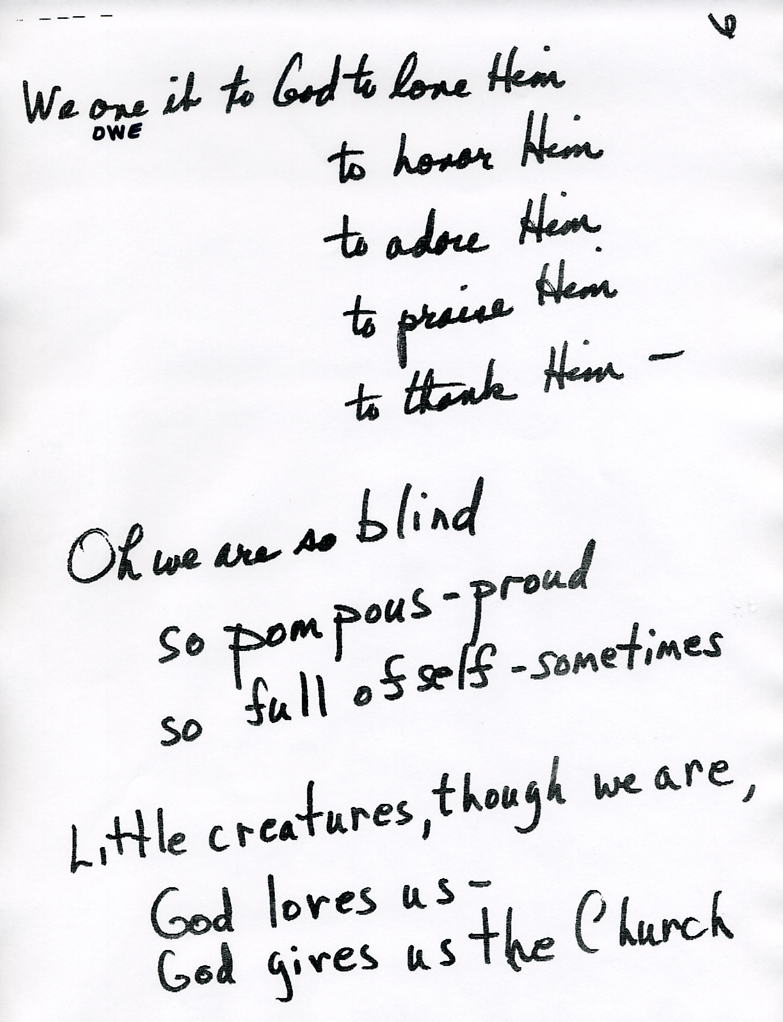 6
We owe it to God to love Him
OWE
to honor Him
to adore Him
to praise Him
to thank Him —
Oh we are so blind
so pompous - proud
so full of self - sometimes
Little creatures, though we are,
God loves us -
God gives us the Church